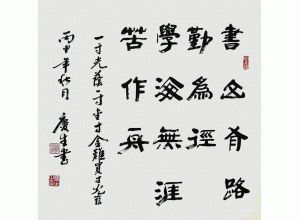 書山有路
勤為徑
學海無涯
苦作舟
一寸光蔭一寸金寸金難買寸光陰
丙申年秋月
廣生書